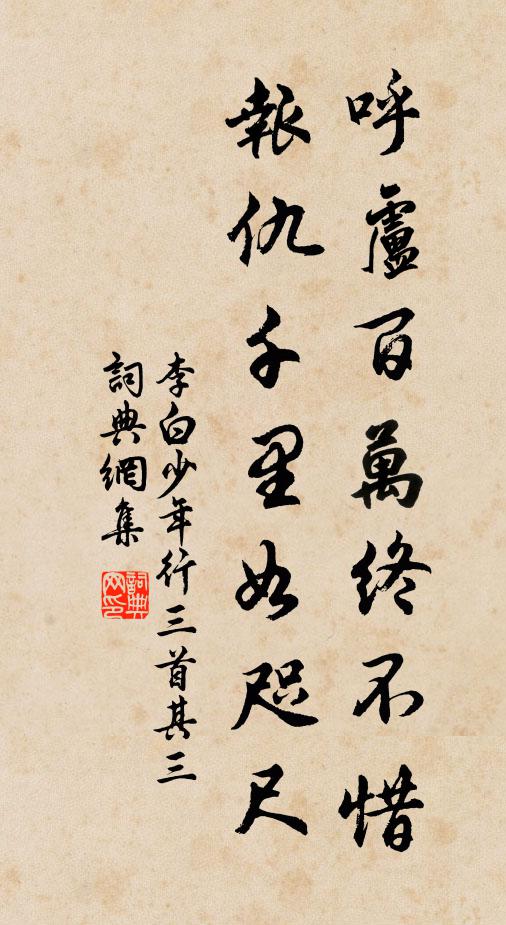 呼盧百萬終不惜
報仇千里如咫尺
李白少年行三首其三
詞典網集
詞典网印